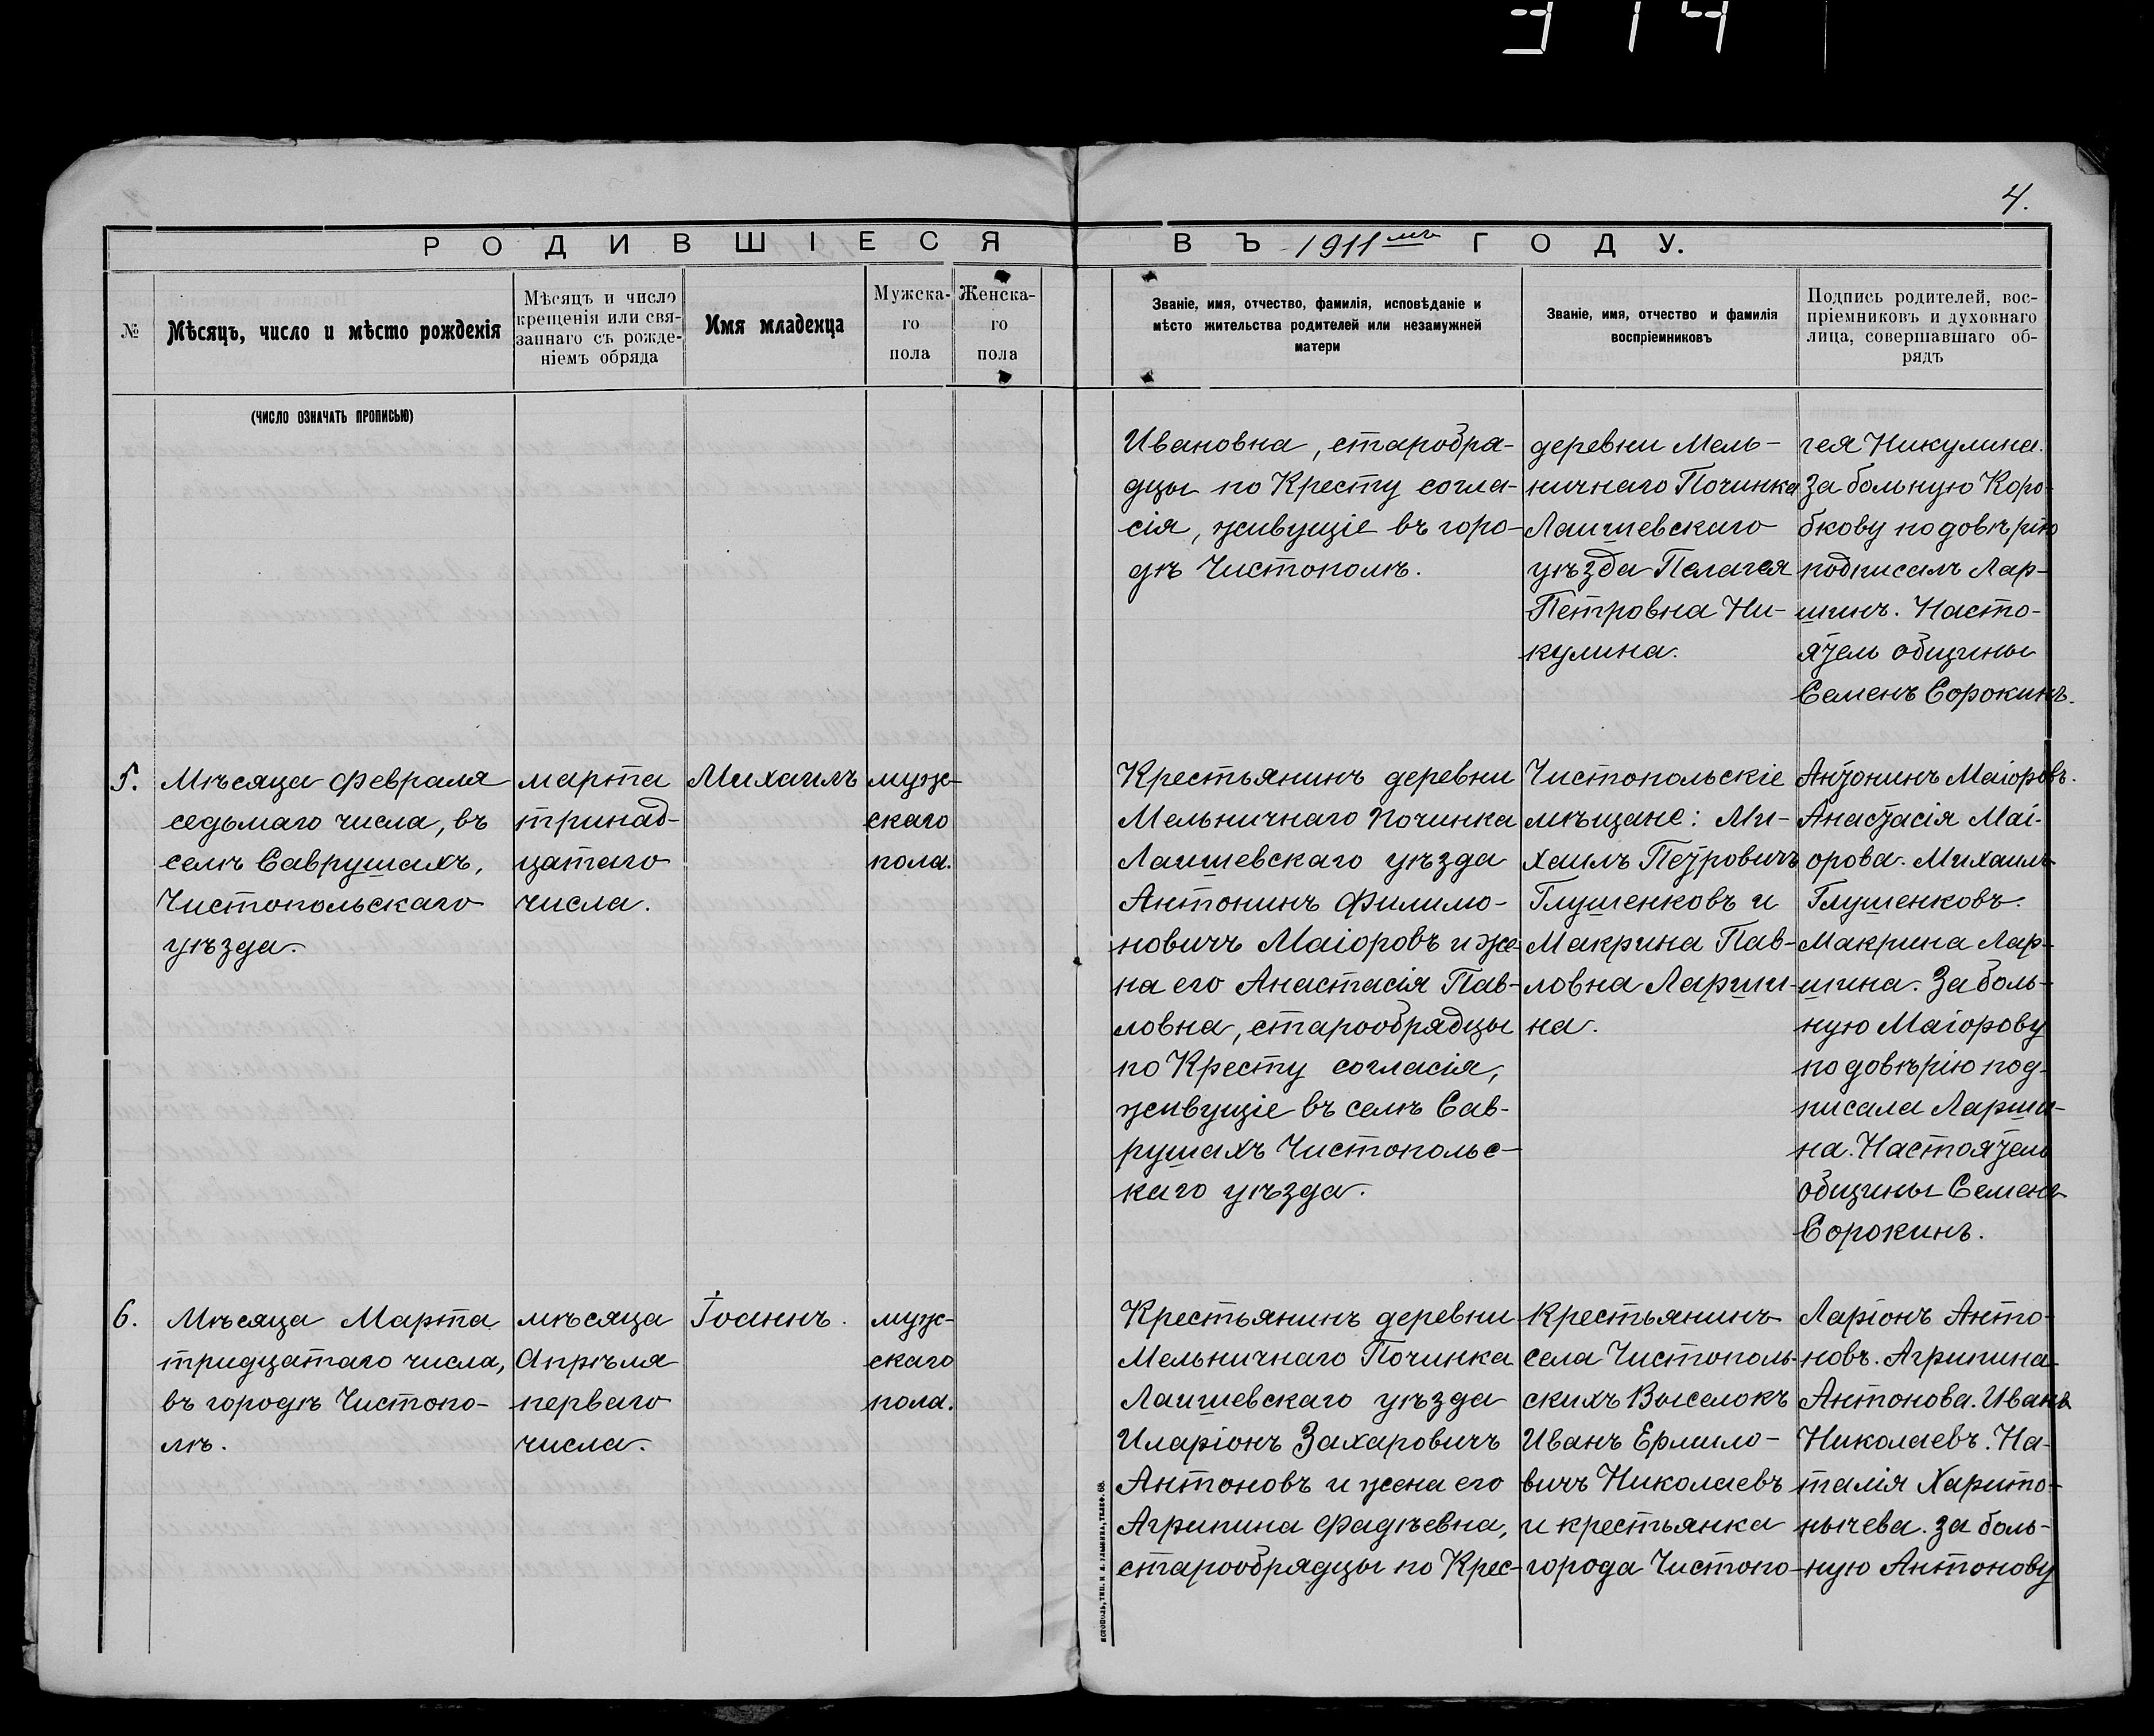 314
4.
РОДИВШІЕСЯ ВЪ 1911 мъ ГОДУ.
№
Мѣсяцъ, число и мѣсто рожденія
Мѣсяцъ и число
крещенія или свя-
заннаго съ рожде-
ніемъ обряда
Имя младенца
Мужска-
го
пола
Женска-
го
пола
Званіе, имя, отчество, фамилія, исповѣданіе и
мѣсто жительства родителей или незамужней
матери
Званіе, имя, отчество и фамилія
воспріемниковъ
Подпись родителей, вос-
пріемниковъ и духовнаго
лица, совершавшаго об-
рядъ
(ЧИСЛО ОЗНАЧАТЬ ПРОПИСЬЮ)
Ивановна, старобра-
дцы по Кресту согла-
сія, живущіе въ горо-
дѣ Чистополѣ.
деревни Мель-
ничнаго Починка
Лаишевскаго
уѣзда Пелагея
Петровна Ни-
кулина.
гея Никулина.
За больную Коро-
бкову по довѣрію
подписалъ Лар-
шинъ. Насто-
ятель общины
Семенъ Сорокинъ.
5.
Мѣсяца Февраля
седьмаго числа, въ
селѣ Саврушахъ,
Чистопольскаго
уѣзда.
марта
тринад-
цатаго
числа.
Михаилъ
муж-
скаго
пола.
Крестьянинъ деревни
Мельничнаго Починка
Лаишевскаго уѣзда
Антонинъ Филимо-
новичъ Маіоровъ и же-
на его Анастасія Пав-
ловна, старообрядцы
по Кресту согласія,
живущіе въ селѣ Сав-
рушахъ Чистопольс-
каго уѣзда.
Чистопольскіе
мѣщане: Ми-
хаилъ Петровичъ
Глушенковъ и
Макрина Пав-
ловна Ларши-
на.
Антонинъ Маіоровъ.
Анастасія Маі-
орова. Михаилъ
Глушенковъ.
Макрина Лар-
шина. За боль-
ную Маіорову
по довѣрію под-
писала Ларши-
на. Настоятель
общины Семенъ
Сорокинъ.
6.
Мѣсяца Марта
тридцатаго числа,
въ городѣ Чистопо-
лѣ.
мѣсяца
Апрѣля
перваго
числа.
Іоаннъ.
муж-
скаго
пола.
Крестьянинъ деревни
Мельничнаго Починка
Лаишевскаго уѣзда
Иларіонъ Захаровичъ
Антоновъ и жена его
Агрипина Фадѣевна,
старообрядцы по Крес-
Крестьянинъ
села Чистополь-
скихъ Выселокъ
Иванъ Ермило-
вичъ Николаевъ
и крестьянка
города Чистопо-
Ларіонъ Анто-
новъ. Агрипина
Антонова. Иванъ
Николаевъ. На-
талія Харито-
нычева. За боль-
ную Антонову